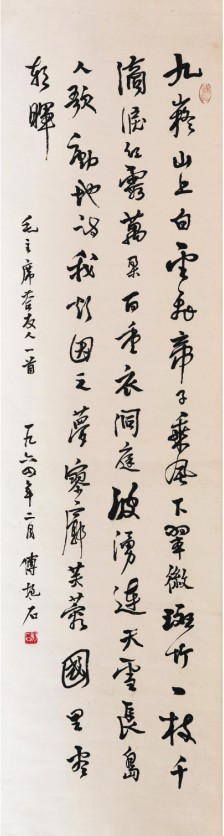 九嶷山上白雲飛帝子乘風下翠微斑竹一枝千
滴淚紅霞萬朵百重衣洞庭波湧連天雪長島
人歌動地詩我欲因之夢寥廓芙蓉國里盡
朝暉
毛主席荅友人一首 一九六四年二月 傅抱石